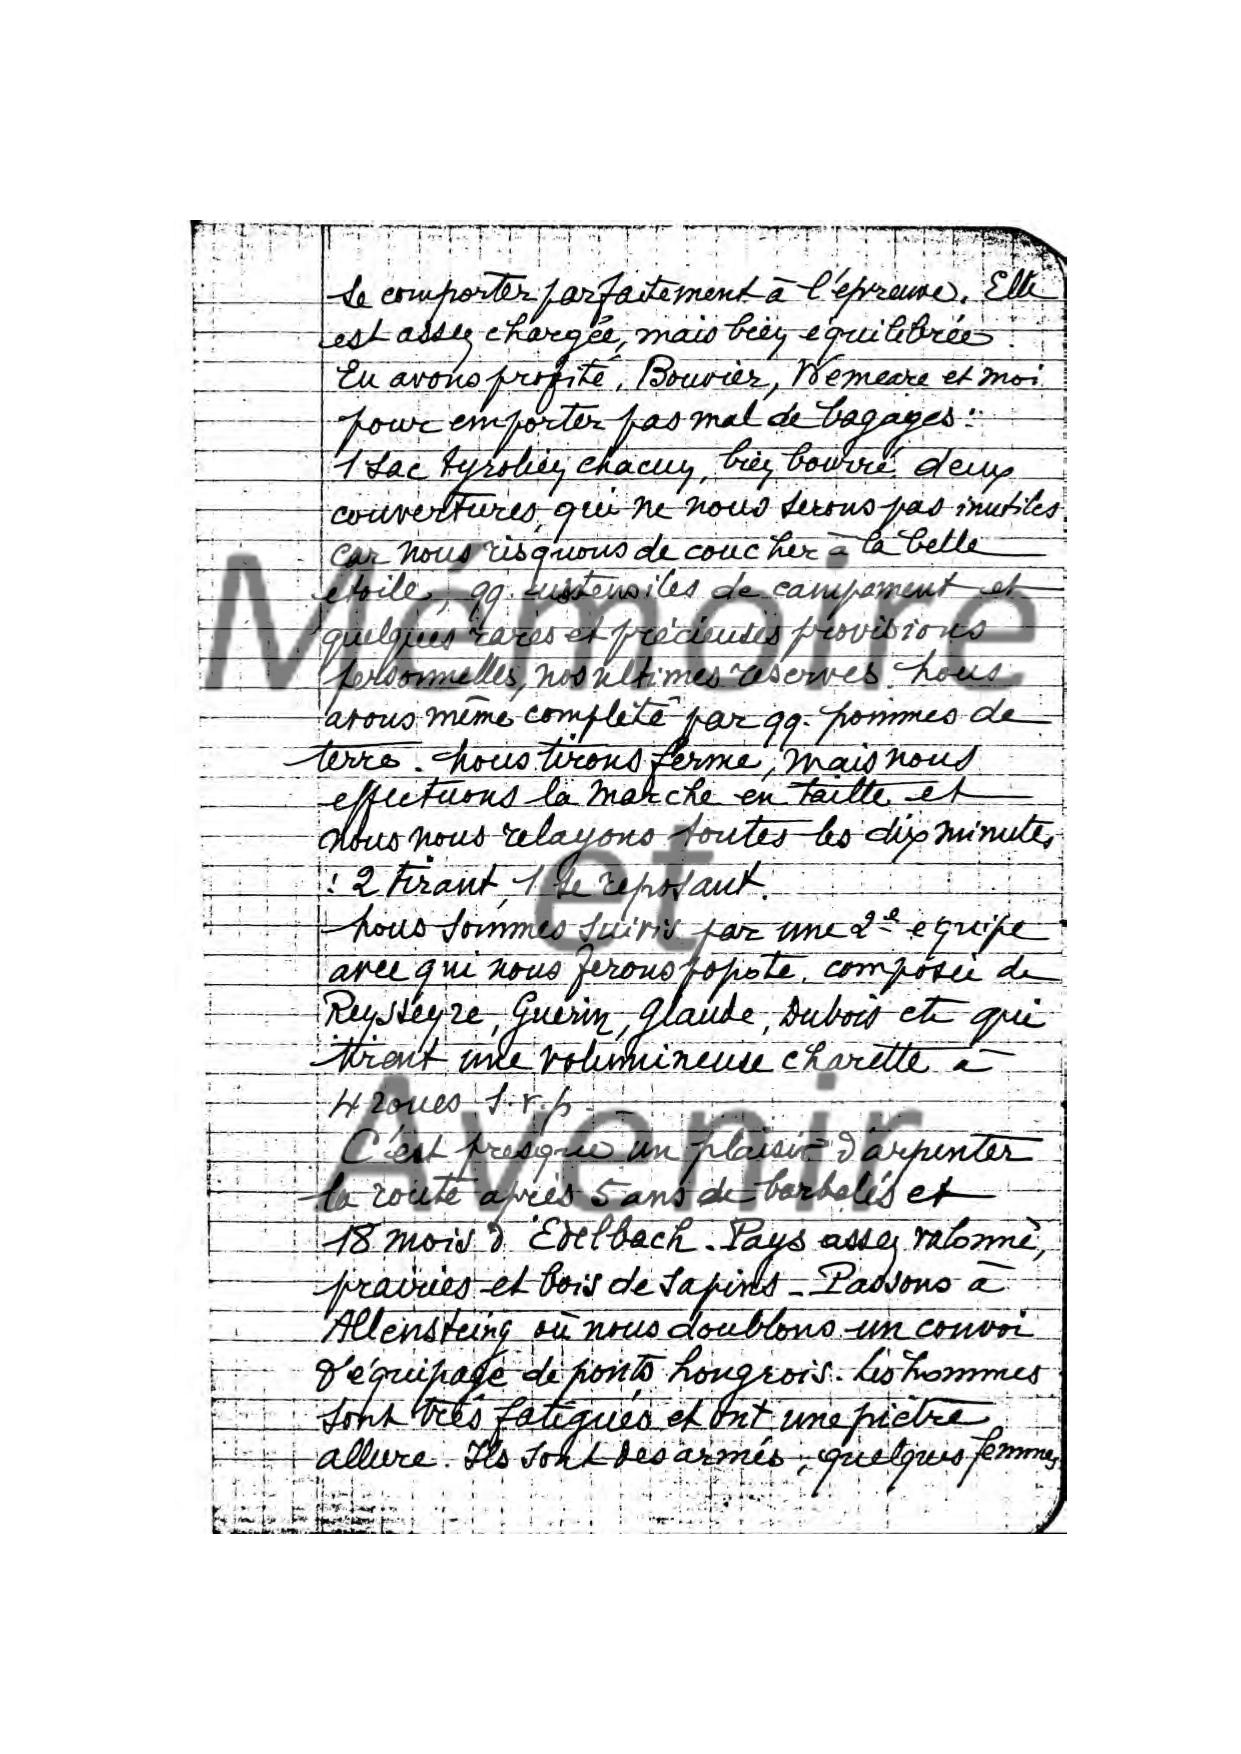 se comporter parfaitement à l'épreuve. Elle
est assez chargée, mais bien équilibrée.
En avons profité, Bouvier, Wemeare et moi
pour emporter pas mal de bagages :
1 sac tyrolien chacun, bien bourré, deux
couvertures, qui ne nous serons pas inutiles
car nous risquons de coucher à la belle
étoile, qq. ustensiles de campement et
quelques rares et précieuses provisions
personnelles, nos ultimes réserves. Nous
avons même complété par qq. pommes de
terre. Nous tirons ferme, mais nous
effectuons la marche en taille et
nous nous relayons toutes les dix minutes
: 2 tirant, 1 se reposant.
Nous sommes suivis par une 2e equipe
avec qui nous ferons popote. composée de
Reysseyre, Guérin, Glaude, Dubois etc qui
tirent une volumineuse charette à
4 roues s.v.p.
C'est presque un plaisir d'arpenter
la route après 5 ans de barbelés et
18 mois d'Edelbach. Pays assez valonné,
prairies et bois de sapins - Passons à
Allensteing où nous doublons un convoi
d'équipage de ponts hongrois. Les hommes
sont très fatigués et ont une piètre
allure. Ils sont desarmés ; quelques femmes
Mémoire
et
Avenir